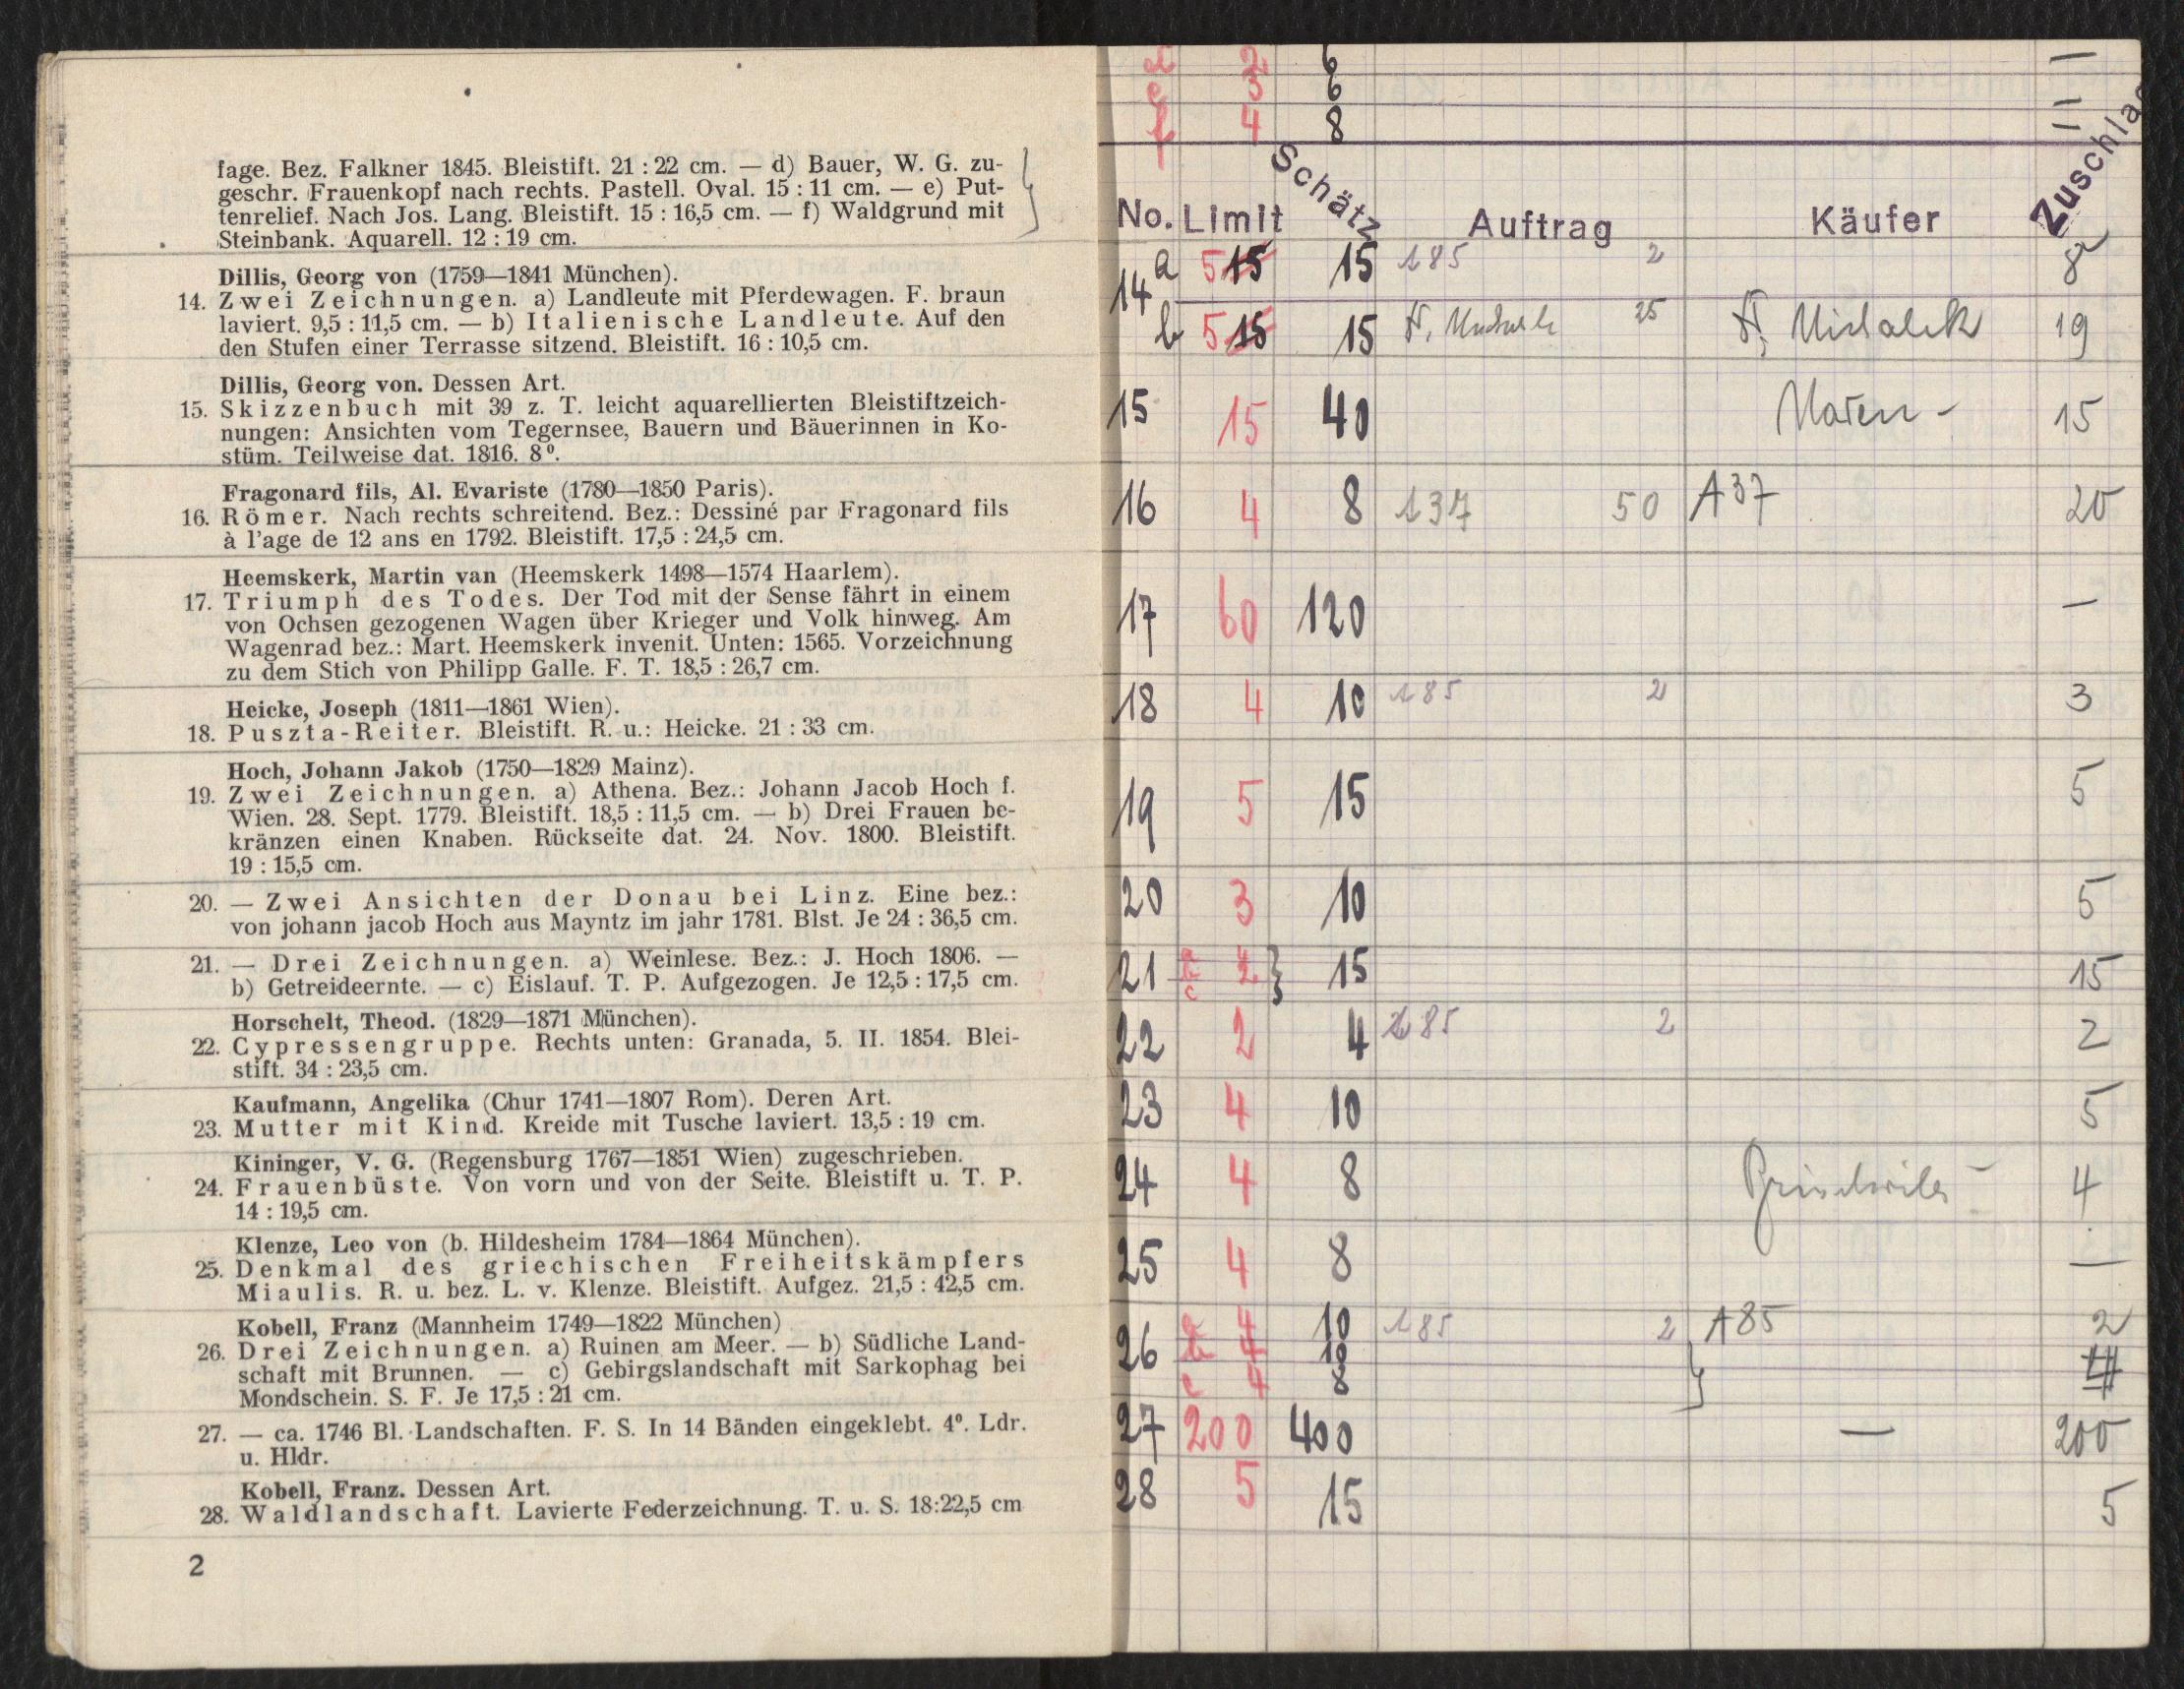 fage. Bez. Falkner 1845. Bleistift. 21 : 22 cm. — d) Bauer, W. G. zu-
geschr. Frauenkopf nach rechts. Pastell. Oval. 15 : 11 cm. — e) Put-
tenrelief. Nach Jos. Lang. Bleistift. 15 : 16,5 cm. — f) Waldgrund mit
Steinbank. Aquarell. 12 : 19 cm.
Dillis, Georg von (1759—1841 München).
14. Zwei Zeichnungen. a) Landleute mit Pferdewagen. F. braun
laviert. 9,5 : 11,5 cm. — b) Italienische Landleute. Auf den
den Stufen einer Terrasse sitzend. Bleistift. 16 : 10,5 cm.
Dillis, Georg von. Dessen Art.
15. Skizzenbuch mit 39 z. T. leicht aquarellierten Bleistiftzeich-
nungen: Ansichten vom Tegernsee, Bauern und Bäuerinnen in Ko-
stüm. Teilweise dat. 1816. 8⁰.
Fragonard fils, Al. Evariste (1780—1850 Paris).
16. Römer. Nach rechts schreitend. Bez.: Dessiné par Fragonard fils
à l'age de 12 ans en 1792. Bleistift. 17,5 : 24,5 cm.
Heemskerk, Martin van (Heemskerk 1498—1574 Haarlem).
17. Triumph des Todes. Der Tod mit der Sense fährt in einem
von Ochsen gezogenen Wagen über Krieger und Volk hinweg. Am
Wagenrad bez.: Mart. Heemskerk invenit. Unten: 1565. Vorzeichnung
zu dem Stich von Philipp Galle. F. T. 18,5 : 26,7 cm.
Heicke, Joseph (1811—1861 Wien).
18. Puszta-Reiter. Bleistift. R. u.: Heicke. 21 : 33 cm.
Hoch, Johann Jakob (1750—1829 Mainz).
19. Zwei Zeichnungen. a) Athena. Bez.: Johann Jacob Hoch f.
Wien. 28. Sept. 1779. Bleistift. 18,5 : 11,5 cm. — b) Drei Frauen be-
kränzen einen Knaben. Rückseite dat. 24. Nov. 1800. Bleistift.
19 : 15,5 cm.
20. — Zwei Ansichten der Donau bei Linz. Eine bez.:
von johann jacob Hoch aus Mayntz im jahr 1781. Blst. Je 24 : 36,5 cm.
21. — Drei Zeichnungen. a) Weinlese. Bez.: J. Hoch 1806. —
b) Getreideernte. — c) Eislauf. T. P. Aufgezogen. Je 12,5 : 17,5 cm.
Horschelt, Theod. (1829—1871 München).
22. Cypressengruppe. Rechts unten: Granada, 5. II. 1854. Blei-
stift. 34 : 23,5 cm.
Kaufmann, Angelika (Chur 1741—1807 Rom). Deren Art.
23. Mutter mit Kind. Kreide mit Tusche laviert. 13,5 : 19 cm.
Kininger, V. G. (Regensburg 1767—1851 Wien) zugeschrieben.
24. Frauenbüste. Von vorn und von der Seite. Bleistift u. T. P.
14 : 19,5 cm.
Klenze, Leo von (b. Hildesheim 1784—1864 München).
25. Denkmal des griechischen Freiheitskämpfers
Miaulis. R. u. bez. L. v. Klenze. Bleistift. Aufgez. 21,5 : 42,5 cm.
Kobell, Franz (Mannheim 1749—1822 München)
26. Drei Zeichnungen. a) Ruinen am Meer. — b) Südliche Land-
schaft mit Brunnen. — c) Gebirgslandschaft mit Sarkophag bei
Mondschein. S. F. Je 17,5 : 21 cm.
27. — ca. 1746 Bl. Landschaften. F. S. In 14 Bänden eingeklebt. 4⁰. Ldr.
u. Hldr.
Kobell, Franz. Dessen Art.
28. Waldlandschaft. Lavierte Federzeichnung. T. u. S. 18:22,5 cm
2
d 2 6 —
e 3 6 —
f 4 8 —
No. Limit Schätz Auftrag Käufer Zuschlag
14 a 5 15 15 185 2 8
b 5 15 15 25 19
15 15 40 15
16 4 8 137 50 A37 20
17 60 120 —
18 4 10 185 2 3
19 5 15 5
20 3 10 5
21 a b c 15 15
22 2 4 185 2 2
23 4 10 5
24 4 8 4
25 4 8 —
26 a 4 10 185 2 A85 2
b 4 10
c 4 8
27 200 400 — 200
28 5 15 5